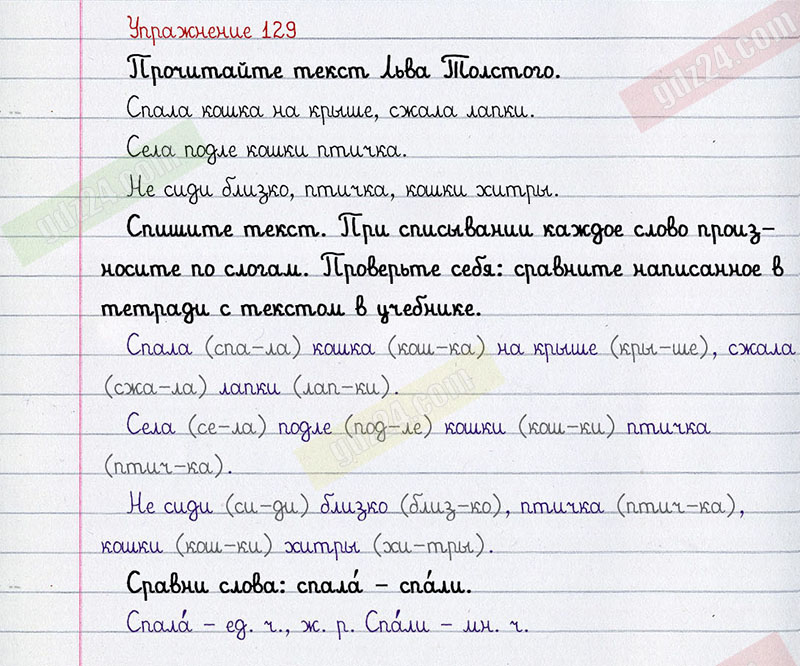 Упражнение 129
Прочитайте текст Льва Толстого.
Спала кошка на крыше, сжала лапки.
Села подле кошки птичка.
Не сиди близко, птичка, кошки хитры.
Спишите текст. При списывании каждое слово произ-
носите по слогам. Проверьте себя: сравните написанное в
тетради с текстом в учебнике.
Спала (спа-ла) кошка (кош-ка) на крыше (кры-ше), сжала
(сжа-ла) лапки (лап-ки).
Села (се-ла) подле (под-ле) кошки (кош-ки) птичка
(птич-ка).
Не сиди (си-ди) близко (близ-ко), птичка (птич-ка),
кошки (кош-ки) хитры (хи-тры).
Сравни слова: спала́ – спа́ли.
Спала́ – ед. ч., ж. р. Спа́ли – мн. ч.
gdz24.com
gdz24.com
gdz24.com